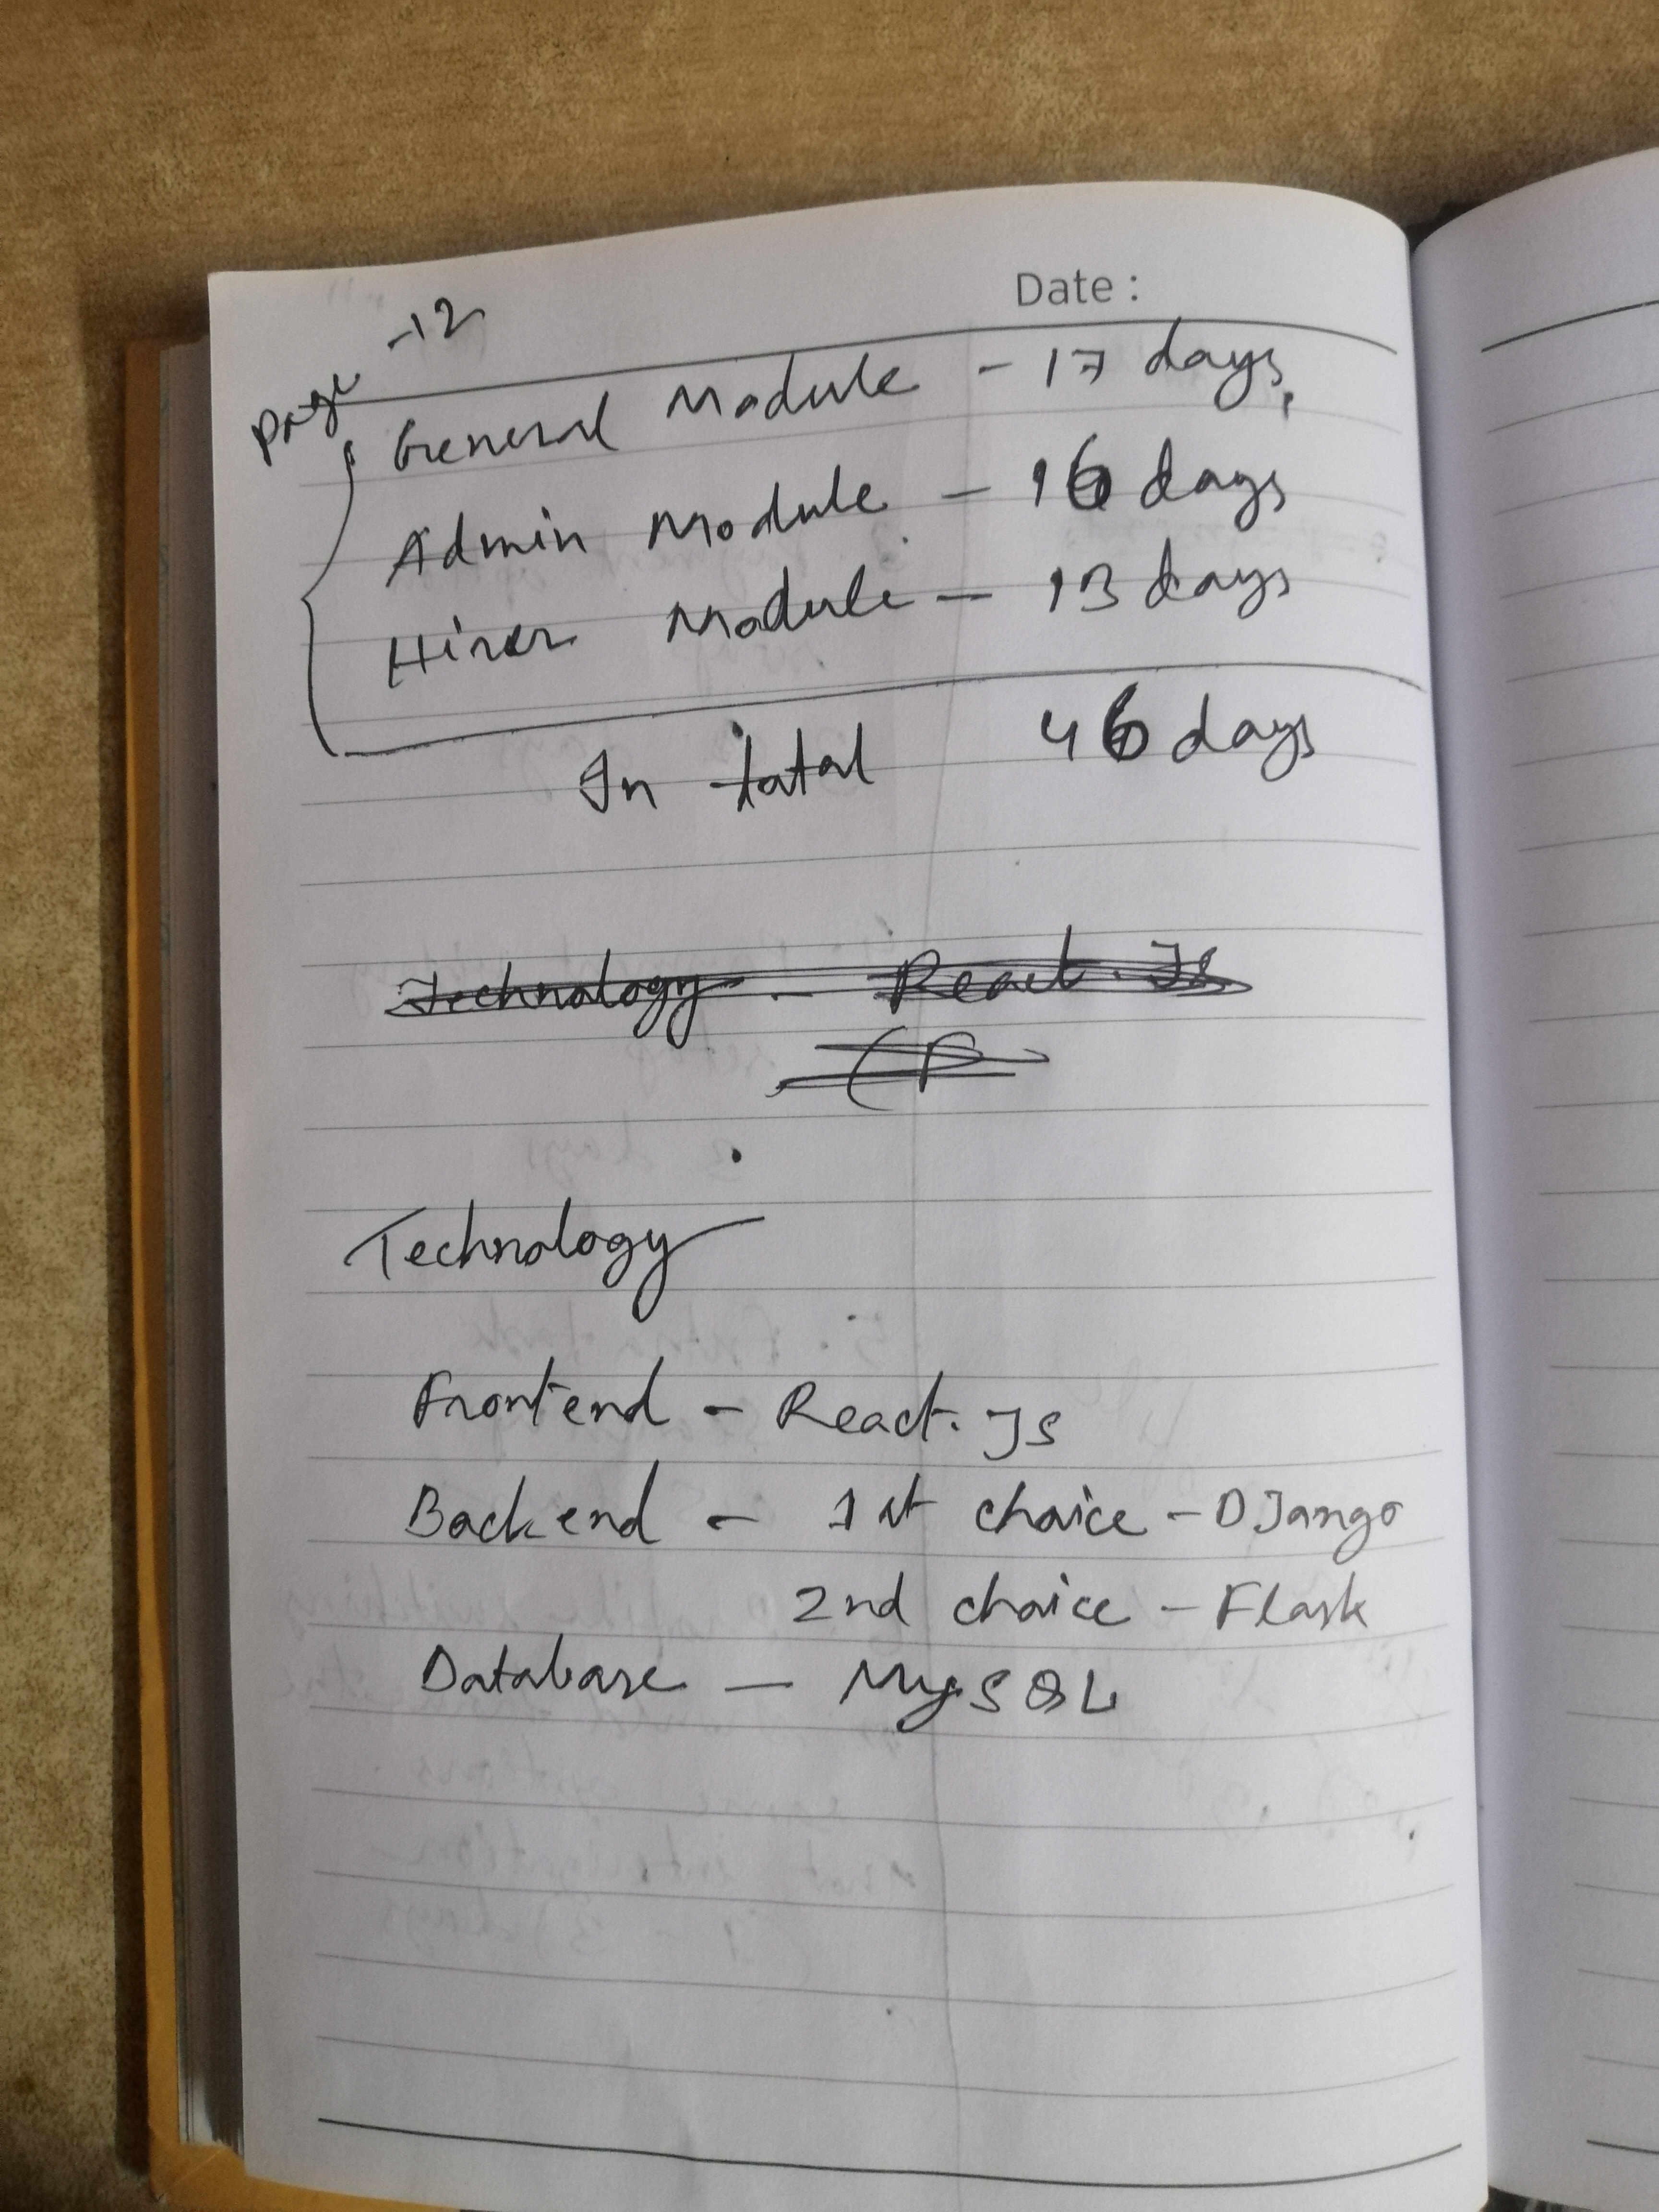 Date :
Page -12
General Module - 17 days,
Admin Module - 16 days
Hirer Module - 13 days
In total 46 days
Technology - React.Js
(B
Technology
Frontend - React.Js
Backend - 1st choice - DJango
2nd choice - Flask
Database - MySQL